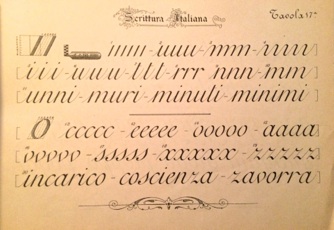 Scrittura Italiana Tavola 17ª
iiiii - iuuu - immi - inini
iii - uuu - ttt - rrr - nnn - mm
unni - muri - minuti - minimi
O ccccc - eeeee - ooooo - aaaa
vvvvv - sssss - xxxxx - zzzzz
incarico - coscienza - zavorra